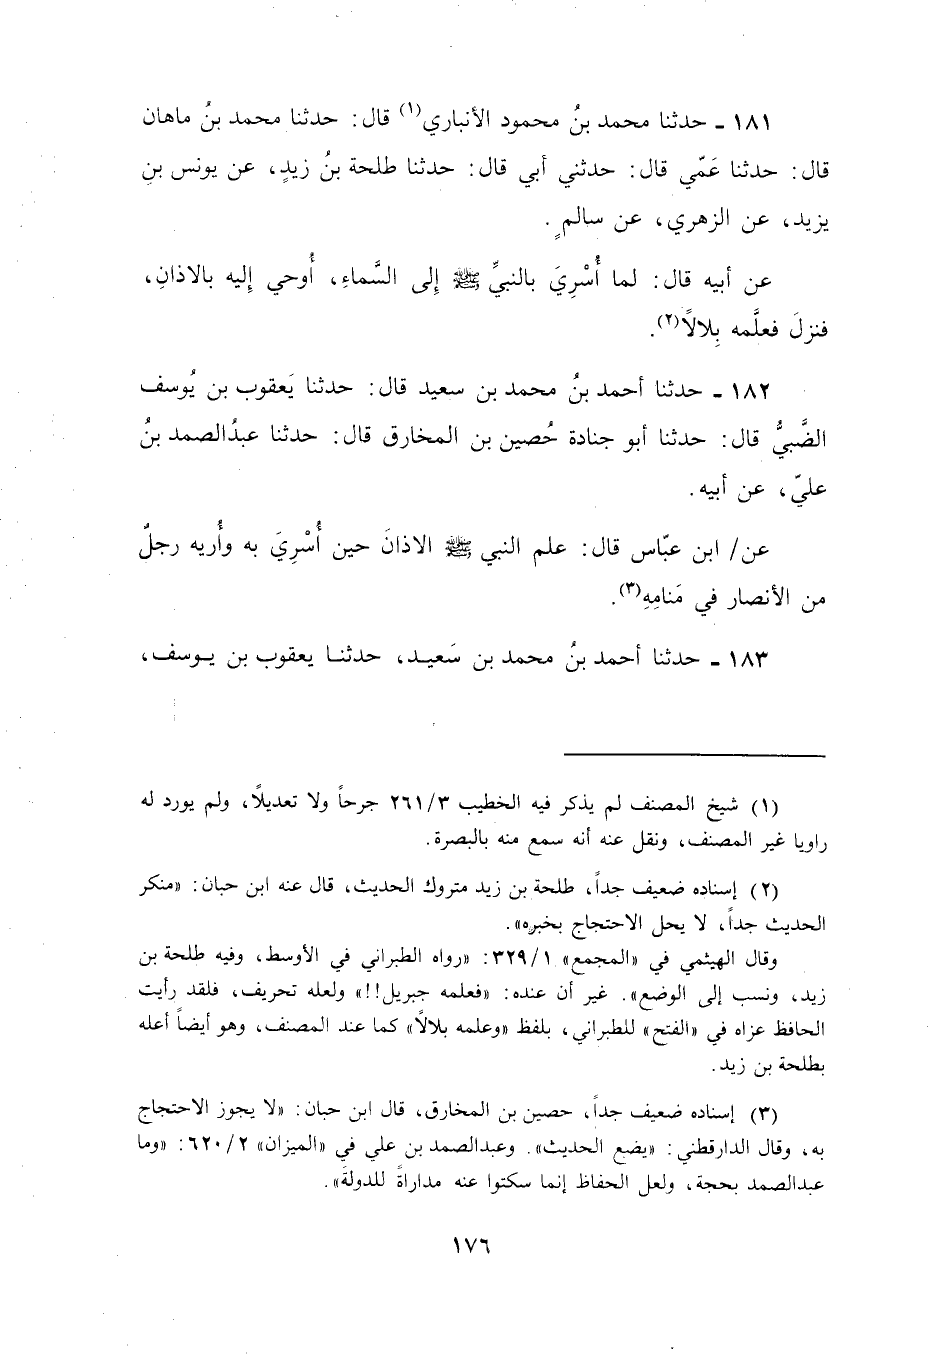 ١٨١ ـ حدثنا محمد بنُ محمود الأنباري(١) قال: حدثنا محمد بنُ ماهان
قال: حدثنا عَمّي قال: حدثني أبي قال: حدثنا طلحة بنُ زيدٍ، عن يونس بنِ
يزيد، عن الزهري، عن سالمٍ.
عن أبيه قال: لما أُسْرِيَ بالنبيِّ ﷺ إِلى السَّماءِ، أُوحي إِليه بالاذانِ،
فنزلَ فعلَّمه بِلالاً(٢).
١٨٢ ـ حدثنا أحمد بنُ محمد بن سعيد قال: حدثنا يَعقوب بن يُوسف
الضَّبيُّ قال: حدثنا أبو جنادة حُصين بن المخارق قال: حدثنا عبدُالصمد بنُ
عليّ، عن أبيه.
عن/ ابن عبّاس قال: علم النبي ﷺ الاذانَ حين أُسْرِيَ به وأُريه رجلٌ
من الأنصار في مَنامِهِ(٣).
١٨٣ ـ حدثنا أحمد بنُ محمد بن سَعيـد، حدثنـا يعقوب بن يـوسف،
(١) شيخ المصنف لم يذكر فيه الخطيب ٢٦١/٣ جرحاً ولا تعديلاً، ولم يورد له
راويا غير المصنف، ونقل عنه أنه سمع منه بالبصرة.
(٢) إسناده ضعيف جداً، طلحة بن زيد متروك الحديث، قال عنه ابن حبان: «منكر
الحديث جداً، لا يحل الاحتجاج بخبره».
وقال الهيثمي في «المجمع» ٣٢٩/١: «رواه الطبراني في الأوسط، وفيه طلحة بن
زيد، ونسب إلى الوضع». غير أن عنده: «فعلمه جبريل!!» ولعله تحريف، فلقد رأيت
الحافظ عزاه في «الفتح» للطبراني، بلفظ «وعلمه بلالاً» كما عند المصنف، وهو أيضاً أعله
بطلحة بن زيد.
(٣) إسناده ضعيف جداً، حصين بن المخارق، قال ابن حبان: «لا يجوز الاحتجاج
به، وقال الدارقطني: «يضع الحديث». وعبدالصمد بن علي في «الميزان» ٦٢٠/٢: «وما
عبدالصمد بحجة، ولعل الحفاظ إنما سكتوا عنه مداراةً للدولة».
١٧٦